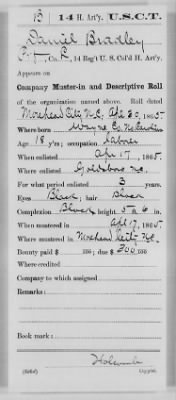 B | 14 H. Art'y. | U.S.C.T.
Daniel Bradley
Pvt., Co. L, 14 Reg't U. S. Col'd H. Art'y.
Appears on
Company Muster-in and Descriptive Roll
of the organization named above. Roll dated
Morehead City N.C., Apl 30, 1865.
Where born Wayne Co. N. Carolina
Age 18 y'rs; occupation Laborer
When enlisted Apl 17, 1865.
Where enlisted Goldsboro N.C.
For what period enlisted 3 years.
Eyes Black; hair Black
Complexion Black; height 5 ft. 6 in.
When mustered in Apl 17, 1865.
Where mustered in Morehead City N.C.
Bounty paid $ 100; due $ 300 100
Where credited
Company to which assigned
Remarks:
Book mark:
Holcomb
Copyist.